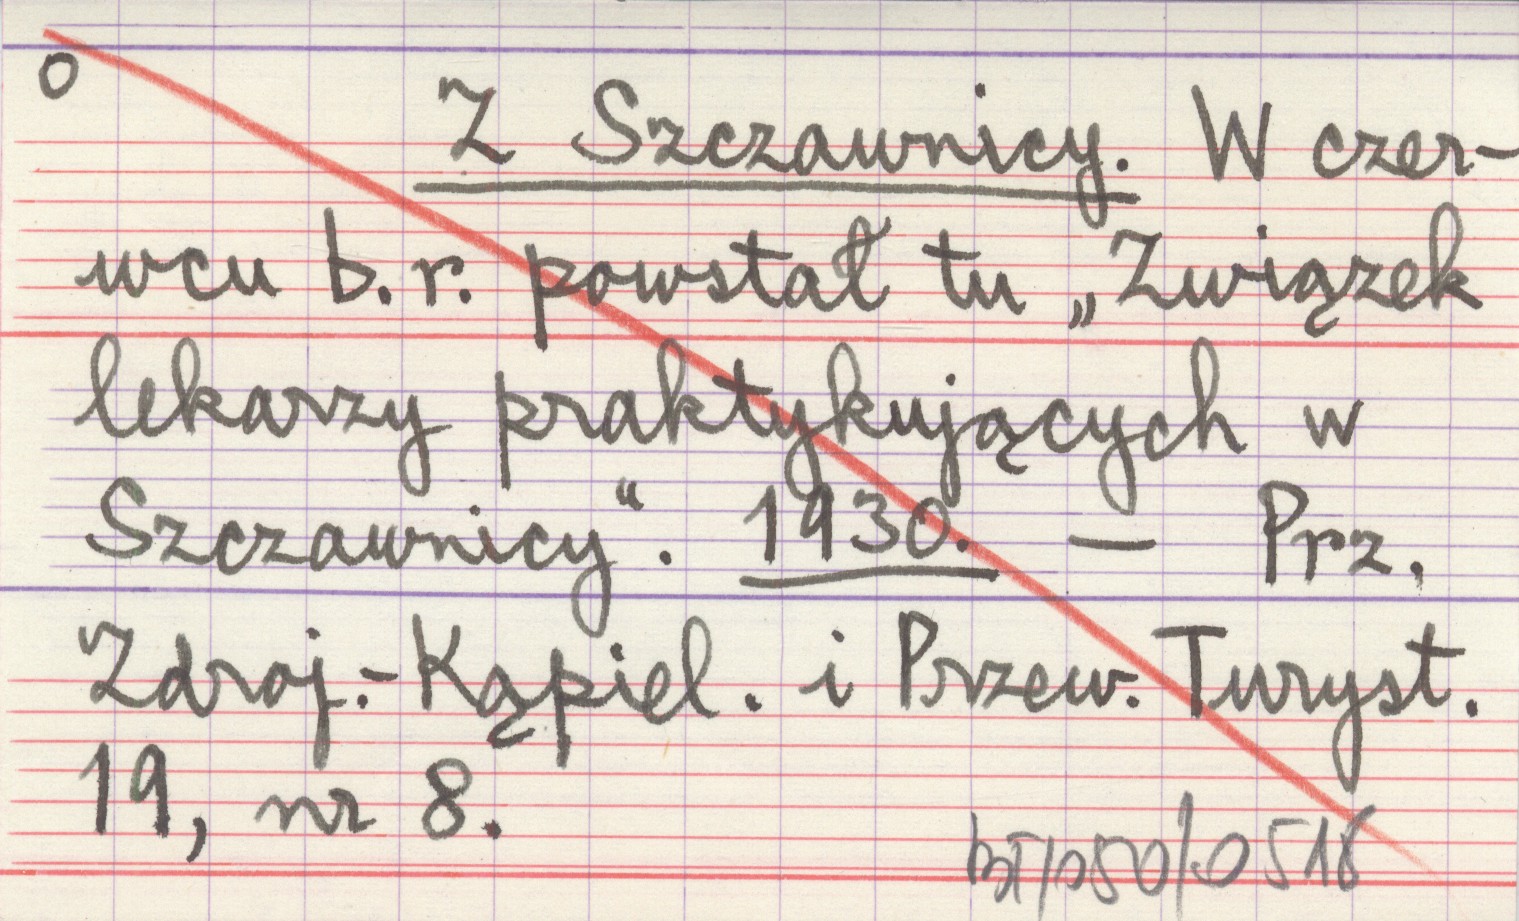 O
Z Szczawnicy. W czer-
wcu b.r. powstał tu „Związek
lekarzy praktykujących w
Szczawnicy“. 1930. — Prz.
Zdroj.-Kąpiel. i Przew. Turyst.
19, nr 8.